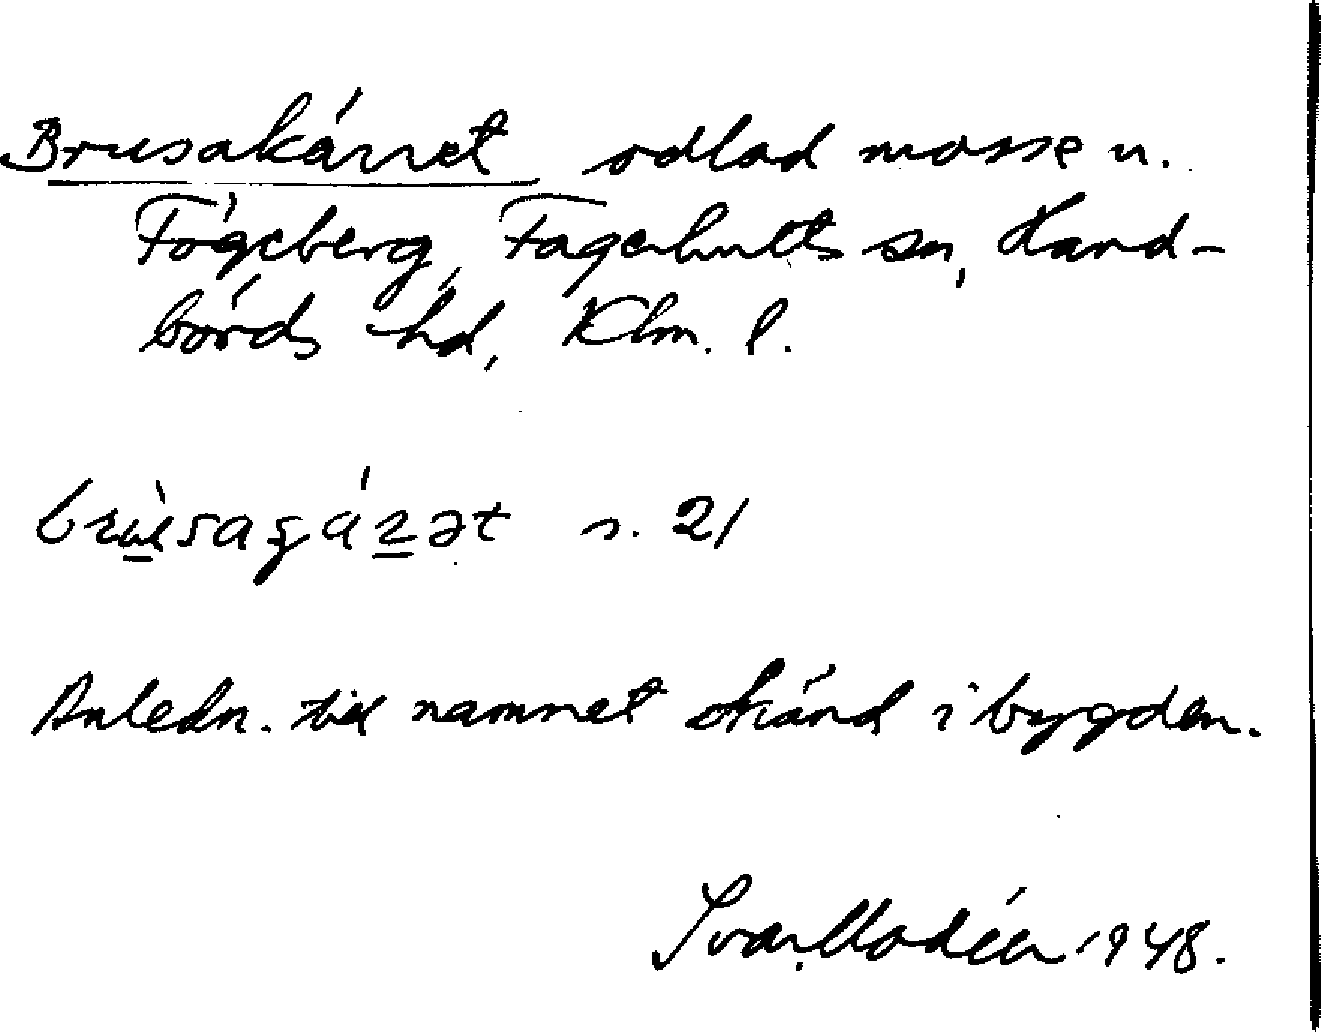 Brusakärret odlad mosse u.
Fågeberg, Fagerhults sn, Hand-
börds hd, Klm. l.
s. 21
Anledn. till namnet okänd i bygden.
Ivar Modéer 1948.